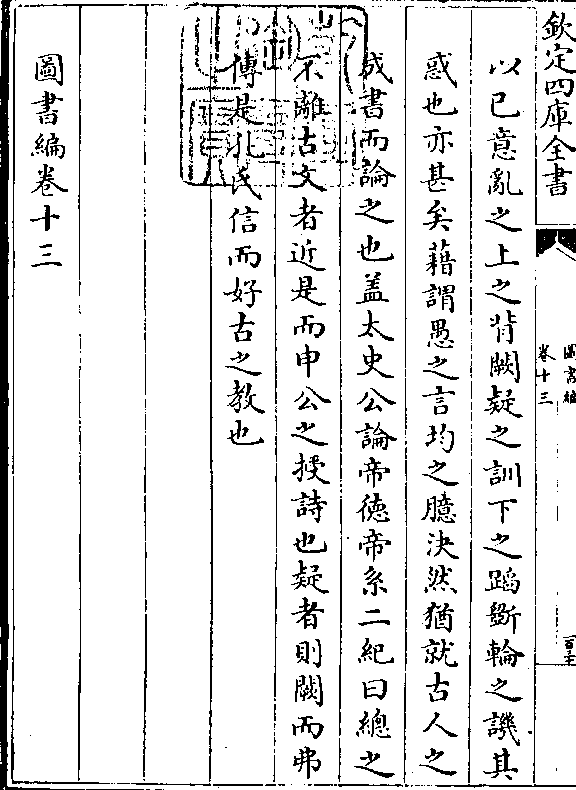 欽定四庫全書
圖書編
卷十三
以己意亂之上之背闕疑之訓下之蹈斲輪之譏其
惑也亦甚矣藉謂愚之言均之臆決然猶就古人之
成書而論之也盖太史公論帝德帝系二紀曰總之
不離古文者近是而申公之授詩也疑者則闕而弗
傳是孔氏信而好古之教也
圖書編卷十三